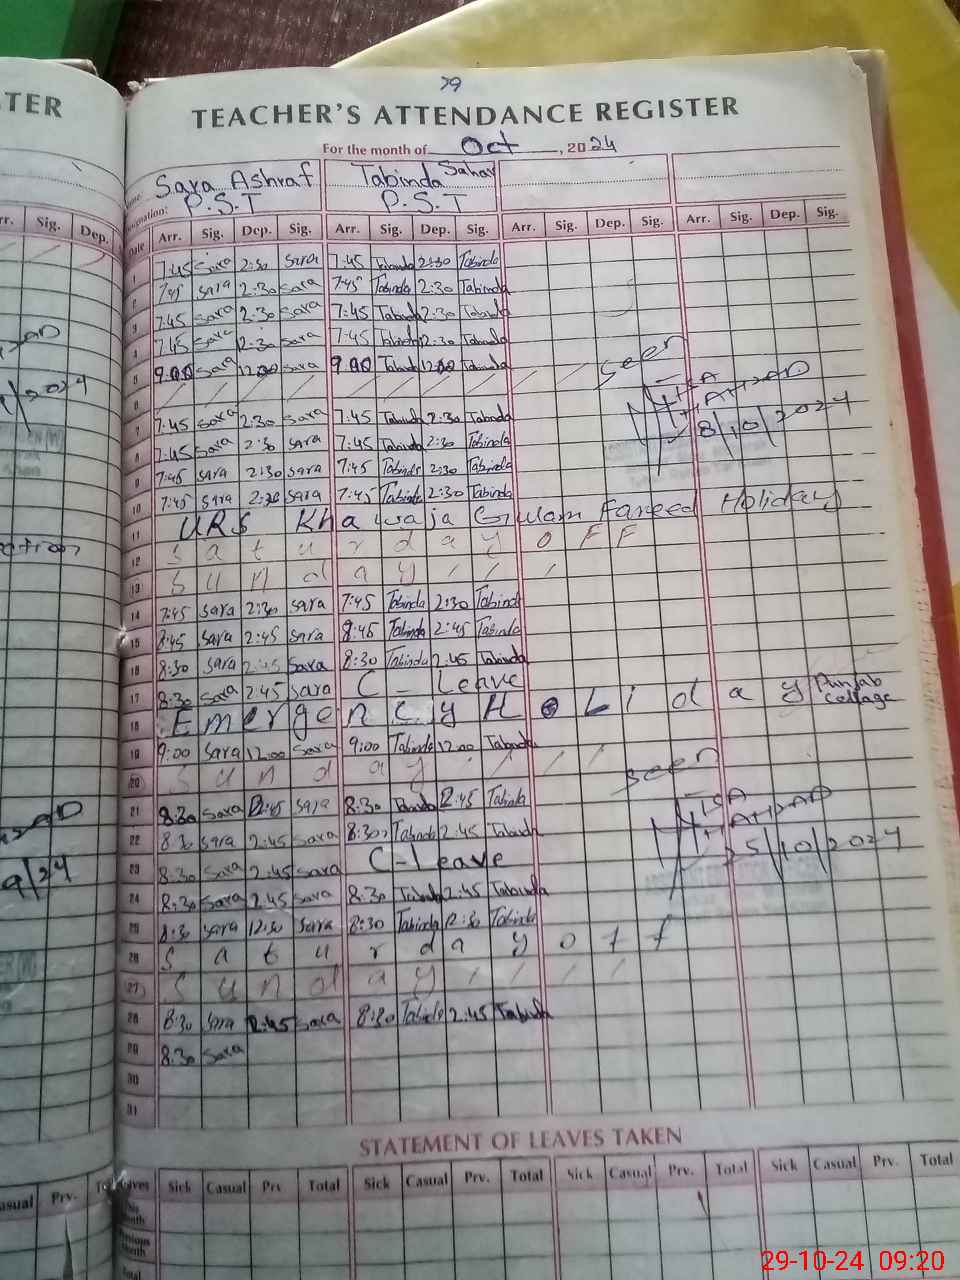 29
TER
TEACHER'S ATTENDANCE REGISTER
For the month of Oct, 2024
Sara Ashraf Tabinda Sahar
Designation: P.S.T P.S.T
Sig. Dep. Date Arr. Sig. Dep. Sig. Arr. Sig. Dep. Sig. Arr. Sig. Dep. Sig. Arr. Sig. Dep. Sig.
1 7:45 Sara 2:30 Sara 7:45 Tabinda 2:30 Tabinda
2 7:45 Sara 2:30 Sara 7:45 Tabinda 2:30 Tabinda
3 7:45 Sara 2:30 Sara 7:45 Tabinda 2:30 Tabinda
4 7:45 Sara 2:30 Sara 7:45 Tabinda 2:30 Tabinda
5 9:00 Sara 12:00 Sara 9:00 Tabinda 12:00 Tabinda
seen
6
7 7:45 Sara 2:30 Sara 7:45 Tabinda 2:30 Tabinda
8/10/2024
8 7:45 Sara 2:30 Sara 7:45 Tabinda 2:30 Tabinda
9 7:45 Sara 2:30 Sara 7:45 Tabinda 2:30 Tabinda
10 7:45 Sara 2:30 Sara 7:45 Tabinda 2:30 Tabinda
11 URS Khawaja Gulam Fareed Holiday
12 Saturday OFF
13 Sunday
14 7:45 Sara 2:30 Sara 7:45 Tabinda 2:30 Tabinda
15 8:45 Sara 2:45 Sara 8:45 Tabinda 2:45 Tabinda
16 8:30 Sara 2:45 Sara 8:30 Tabinda 2:45 Tabinda
17 8:30 Sara 2:45 Sara C-Leave
18 Emergency HoLiday Punjab Collage
19 9:00 Sara 12:00 Sara 9:00 Tabinda 12:00 Tabinda
20 Sunday
seen
21 8:30 Sara 2:45 Sara 8:30 Tabinda 2:45 Tabinda
22 8:30 Sara 2:45 Sara 8:30 Tabinda 2:45 Tabinda
23 8:30 Sara 2:45 Sara C-Leave
25/10/2024
24 8:30 Sara 2:45 Sara 8:30 Tabinda 2:45 Tabinda
25 8:30 Sara 12:30 Sara 8:30 Tabinda 12:30 Tabinda
26 Saturday off
27 Sunday
28 8:30 Sara 2:45 Sara 8:30 Tabinda 2:45 Tabinda
29 8:30 Sara
30
31
STATEMENT OF LEAVES TAKEN
Casual Prv. Leaves Sick Casual Prv. Total Sick Casual Prv. Total Sick Casual Prv. Total Sick Casual Prv. Total
This Month
Previous Month
Total
29-10-24 09:20